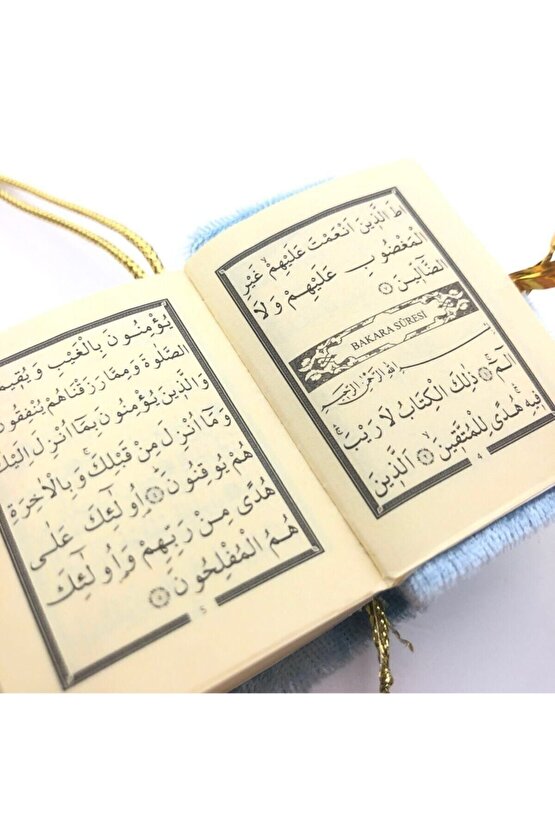 اطَ الَّذِينَ اَنْعَمْتَ عَلَيْهِمْ غَيْرِ
الْمَغْضُوبِ عَلَيْهِمْ وَلَا
الضَّالِّينَ ﴿٧﴾
BAKARA SÛRESİ
بِسْمِ اللّٰهِ الرَّحْمٰنِ الرَّحِيمِ
الٓمٓ ﴿١﴾ ذٰلِكَ الْكِتَابُ لَا رَيْبَ
فِيهِ هُدًى لِلْمُتَّقِينَ ﴿٢﴾ اَلَّذِينَ
4
يُؤْمِنُونَ بِالْغَيْبِ وَيُقِيمُ
الصَّلٰوةَ وَمِمَّا رَزَقْنَاهُمْ يُنْفِقُونَ
وَالَّذِينَ يُؤْمِنُونَ بِمَٓا اُنْزِلَ اِلَيْكَ
وَمَٓا اُنْزِلَ مِنْ قَبْلِكَ وَبِالْاٰخِرَةِ
هُمْ يُوقِنُونَ ﴿٤﴾ اُو۬لٰٓئِكَ عَلٰى
هُدًى مِنْ رَبِّهِمْ وَاُو۬لٰٓئِكَ
هُمُ الْمُفْلِحُونَ ﴿٥﴾
5